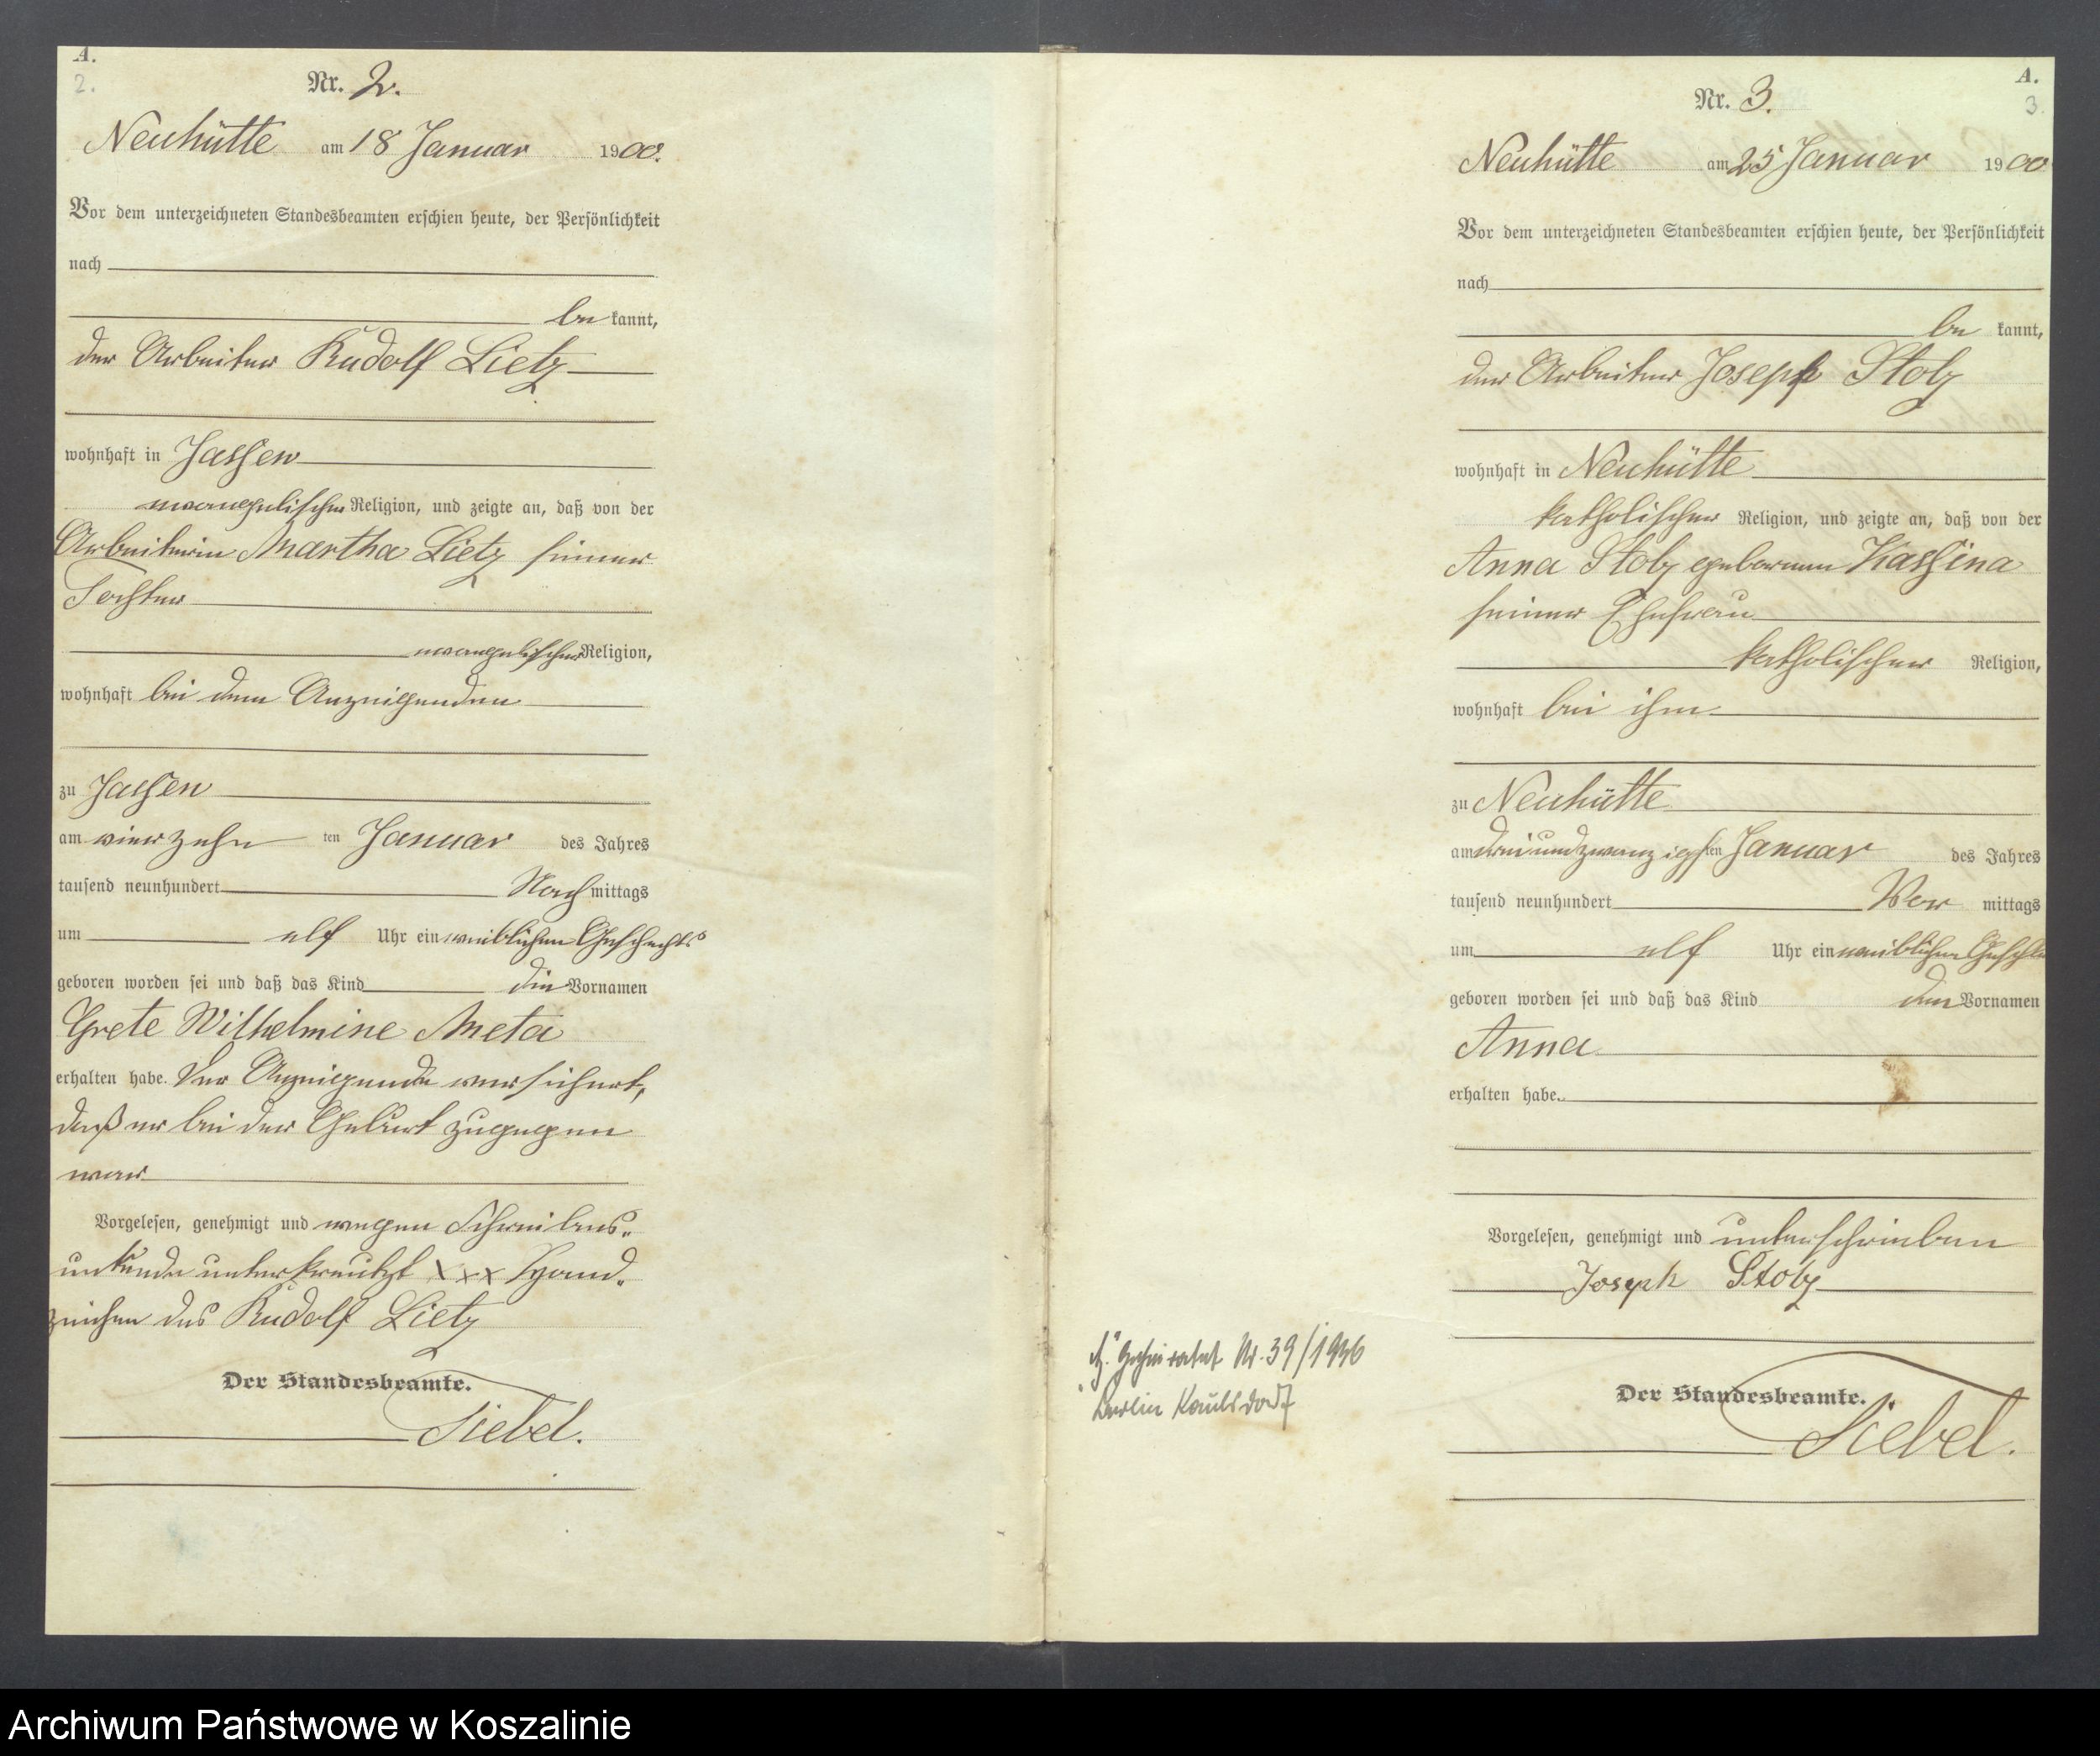 A.
2.
Nr. 2.
Neuhütte am 18 Januar 1900.
Vor dem unterzeichneten Standesbeamten erschien heute, der Persönlichkeit
nach
be kannt,
der Arbeiter Rudolf Lietz
wohnhaft in Jassen
evangelischer Religion, und zeigte an, daß von der
Arbeiterin Martha Lietz seiner
Tochter
evangelischer Religion,
wohnhaft bei dem Anzeigenden
zu Jassen
am vierzehn ten Januar des Jahres
tausend neunhundert Nach mittags
um elf Uhr ein weiblichen Geschlechts
geboren worden sei und daß das Kind die Vornamen
Grete Wilhelmine Meta
erhalten habe. Der Anzeigende versichert,
daß er bei der Geburt zugegen
war
Vorgelesen, genehmigt und wegen Schreibens-
unkunde unterkreutzt xxx Hand-
zeichen des Rudolf Lietz
Der Standesbeamte.
Siebel.
A.
3.
Nr. 3.
Neuhütte am 25 Januar 1900
Vor dem unterzeichneten Standesbeamten erschien heute, der Persönlichkeit
nach
be kannt,
der Arbeiter Joseph Stolz
wohnhaft in Neuhütte
katholischer Religion, und zeigte an, daß von der
Anna Stolz geborenen Kassina
seiner Ehefrau
katholischer Religion,
wohnhaft bei ihm
zu Neuhütte
am dreiundzwanzigsten Januar des Jahres
tausend neunhundert Vor mittags
um elf Uhr ein weiblichen Geschle
geboren worden sei und daß das Kind den Vornamen
Anna
erhalten habe.
Vorgelesen, genehmigt und unterschrieben
Joseph Stolz
Geheiratet Nr. 39/1936
Berlin Kaulsdorf
Der Standesbeamte.
Siebel.
Archiwum Państwowe w Koszalinie